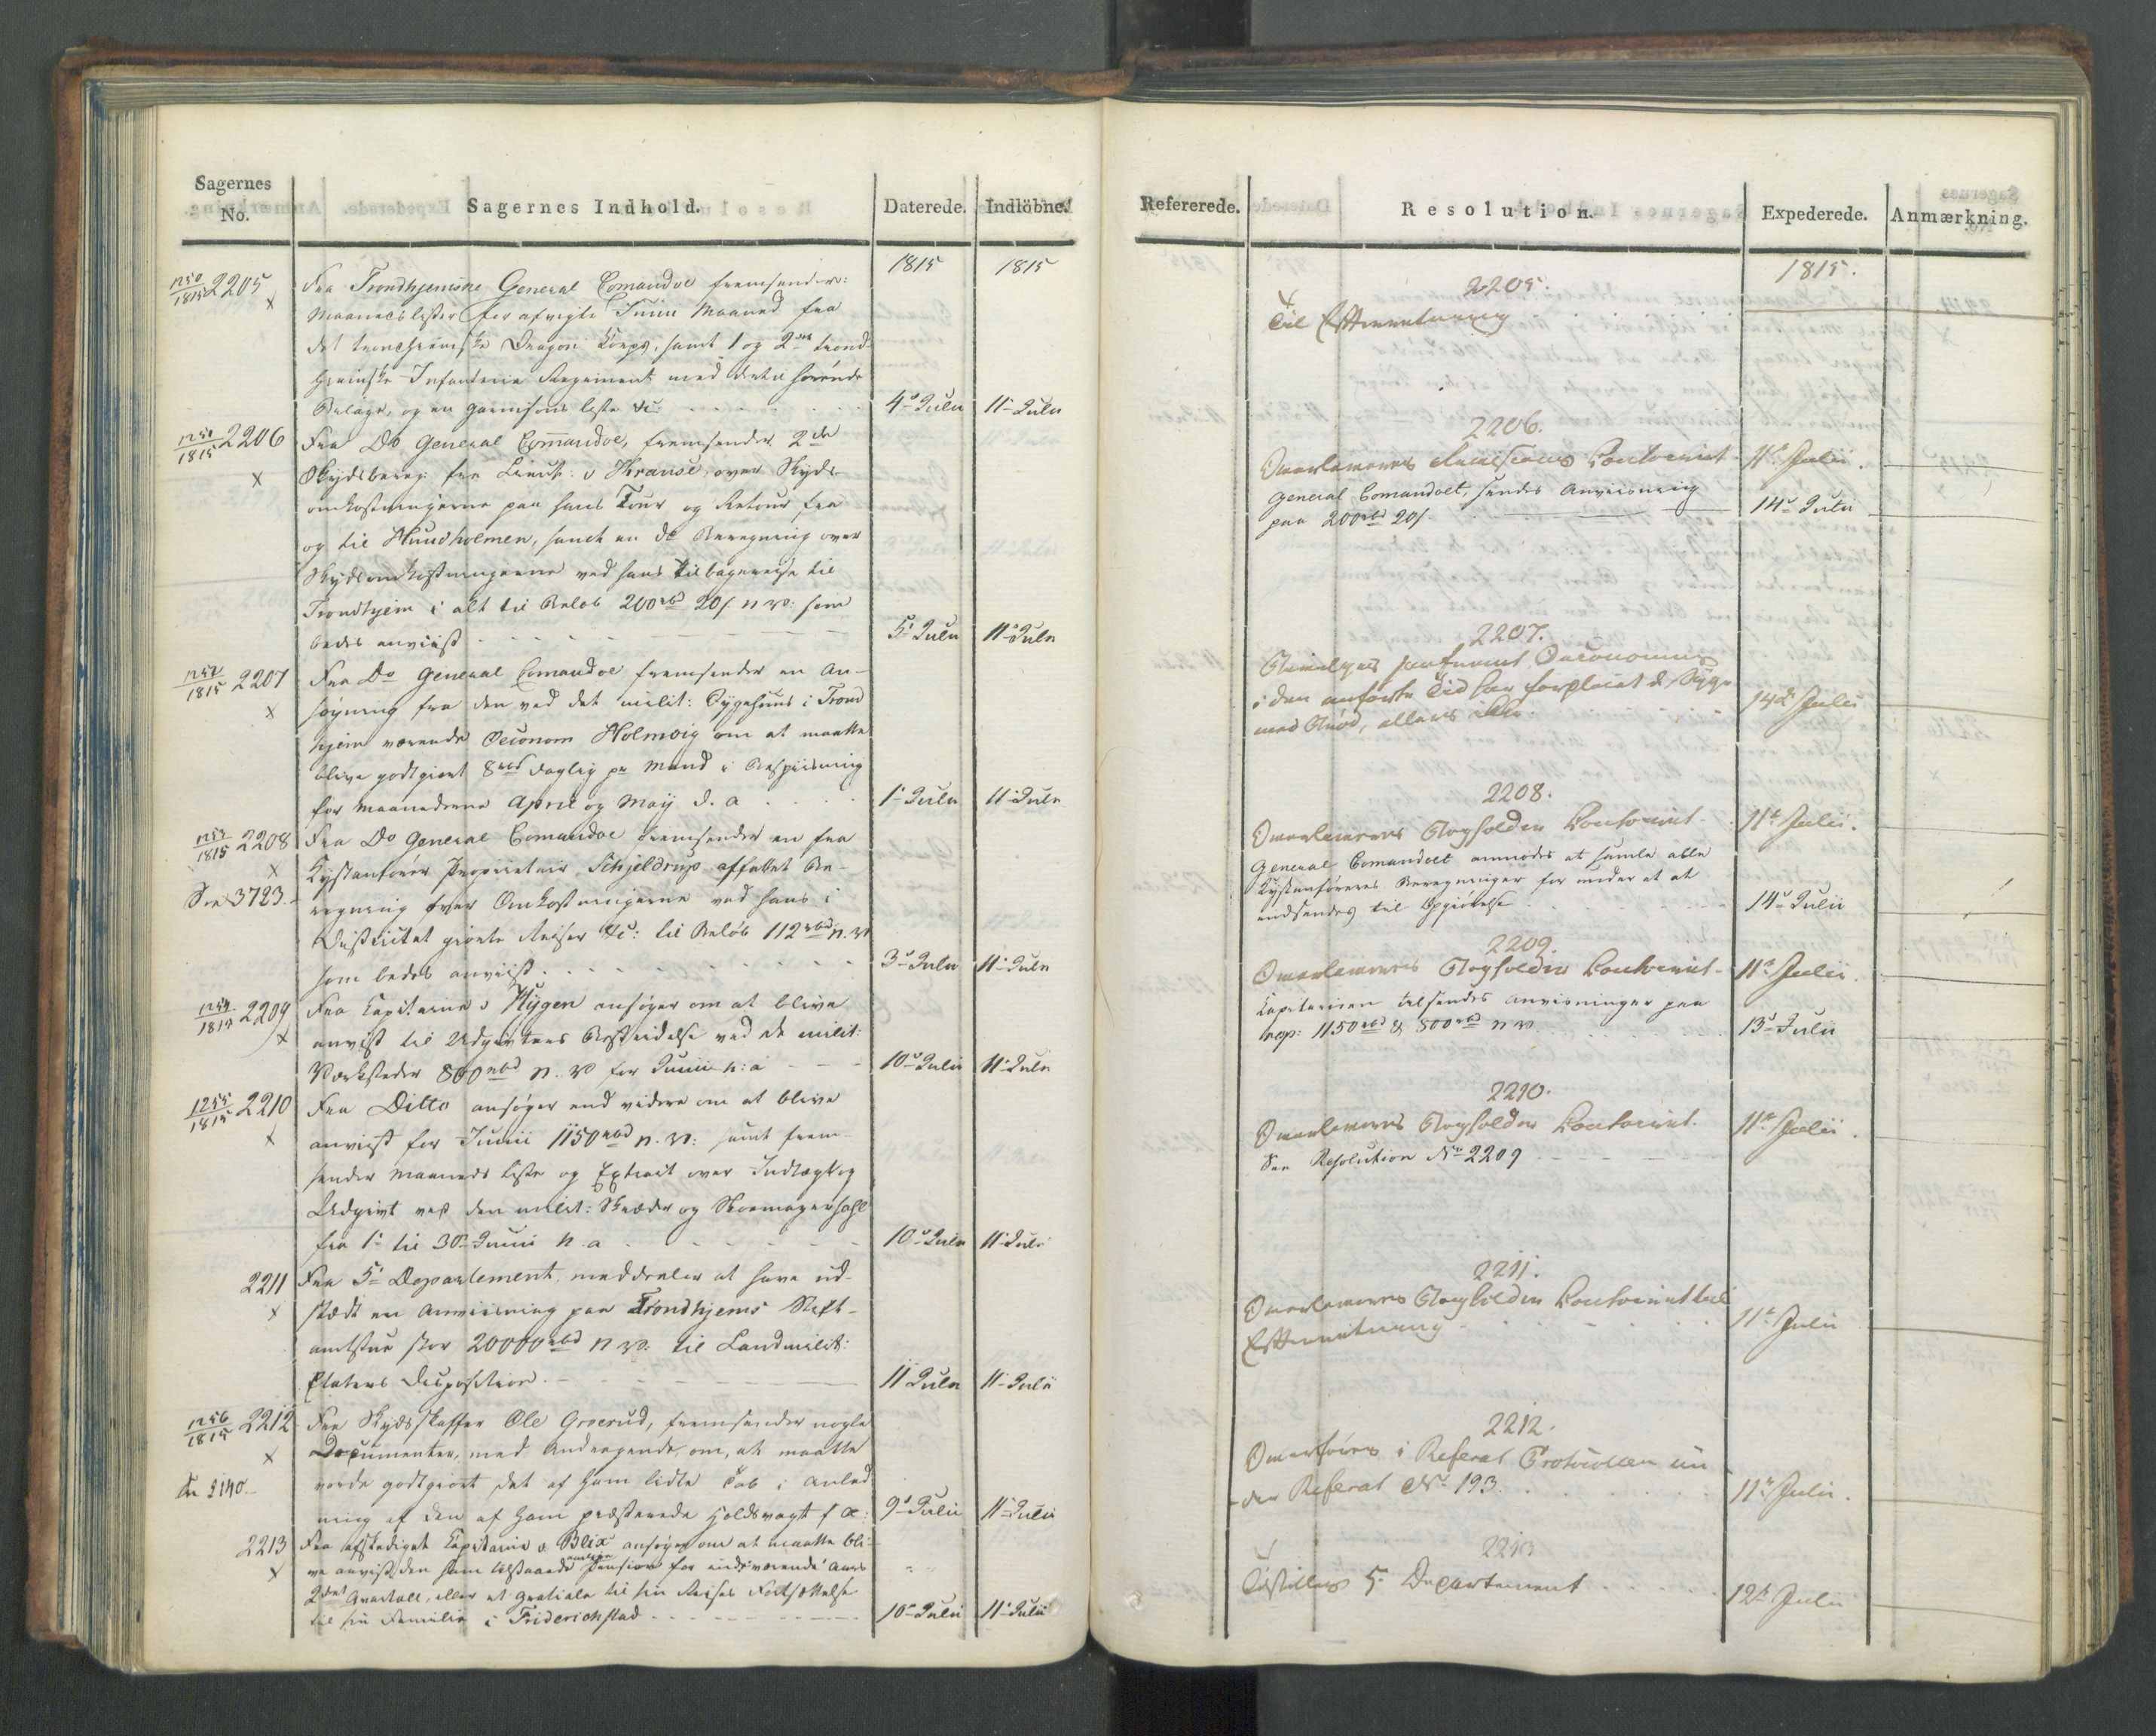 Sagernes
No.
Sagernes Indhold.
Daterede.
Indlöbne.
1815
1815
1250/1815 2205
Fra Trondhjemske General Comandoe fremsender
Maanedslister for afvigte Junii Maaned fra
det trondhiemske Dragon Corps, samt 1 og 2det trond
hiemske Infanterie Regiment med dertil hörende
Bilage, og en Garnisons liste &c:
4de Julii
11te Julii
1251/1815 2206
Fra Do General Comandoe, fremsender 2de
Skydsbereg: fra Lieut: v Krause, over Skyds
omkostningerne paa hans Tour og Retour fra
og til Hundholmen, samt en do Beregning over
Skydsomkostningerne ved hans Tilbagereise til
Trondhjem i alt til Beløb 200 rbd 20 s. n. v: som
bedes anviist
5te Julii
11te Julii
1252/1815 2207
Fra Do General Comandoe fremsender en An-
søgning fra den ved det milit: Sygehuus i Trond
hjem værende Oeconom Holmvig om at maatte
blive godtgiort 8 rbs daglig pr Mand i Bespiisning
for Maanederne April og Maij d. a
1te Julii
11te Julii
1253/1815 2208
Fra Do General Comandoe fremsender en fra
Kystanförer Proprietair Schjeldrup affattet Be-
See 3723.
regning over Omkostningerne ved hans i
Districtet giorte Reiser &c: til Beløb 112 rbd n. v.
som bedes anviist
3de Julii
11te Julii
1254/1815 2209
Fra Capitaine v Hygen ansøger om at blive
anvist til Udgivternes Bestridelse ved de milit:
Værksteder 800 rbd n. v for Junii h: a
10de Julii
11te Julii
1255/1815 2210
Fra Ditto ansøger end videre om at blive
anvist for Junii 1150 rbd n. v: samt frem-
sender Maaneds liste og Extract over Indtægt og
Udgivt ved den milit: Skræder og Skomagersahl
fra 1te til 30te Junii h. a
10de Julii
11te Julii
2211
Fra 5te Departement meddeeler at have ud-
stædt en Anviisning paa Trondhjems Stift-
amtstue stor 20000 rbd n. v. til Landmilit:
Etatens Disposition
11 Julii
11te Julii
1256/1815 2212
Fra Skydsskaffer Ole Groerud, fremsender nogle
Documenter, med Andragende om, at maatte
see 2140.
vorde godtgiort det af ham lidte Tab i Anled
ning af den af ham præsterede Holdsvagt
9de Julii
11te Julii
2213
Fra afskediget Capitaine v Blix ansøger om at maatte bli-
ve anvist den ham tilstaaede Pension for indeværende Aars
2det Qvartall, eller et Gratiale til sin Reises Fortsættelse
til sin Familie i Friderichstad
10de Julii
11te Julii
Refererede.
Resolution.
Expederede.
Anmærkning.
1815.
2205.
Til Efterretning
2206.
Overleveres Revisions Contoiret
11te Julii.
General Comandoet, sendes Anviisning
paa 200 rbd 20 s.
14de Julii
2207.
Oeconomen
i den anførte Tid har forpleiet de Syge
med Brød, ellers ikke.
14de Julii
2208.
Overleveres Bogholder Contoiret.
11te Julii.
General Comandoet anmodes at samle alle
Kystanföreres Beregninger for under et at
indsendes til Opgiörelse
14de Julii
2209.
Overleveres Bogholder Contoiret
11te Julii.
Capitainen tilsendes Anvisninger paa
resp: 1150 rbd & 800 rbd n v.
13de Julii
2210.
Overleveres Bogholder Contoiret.
11te Julii.
See Resolution No 2209
2211.
Overleveres Bogholder Contoiret til
Efterretning
11te Julii
2212.
Overføres i Referat Protocollen un
der Referat No 193.
11te Julii.
2213
Tilstilles 5te Departement
12te Julii